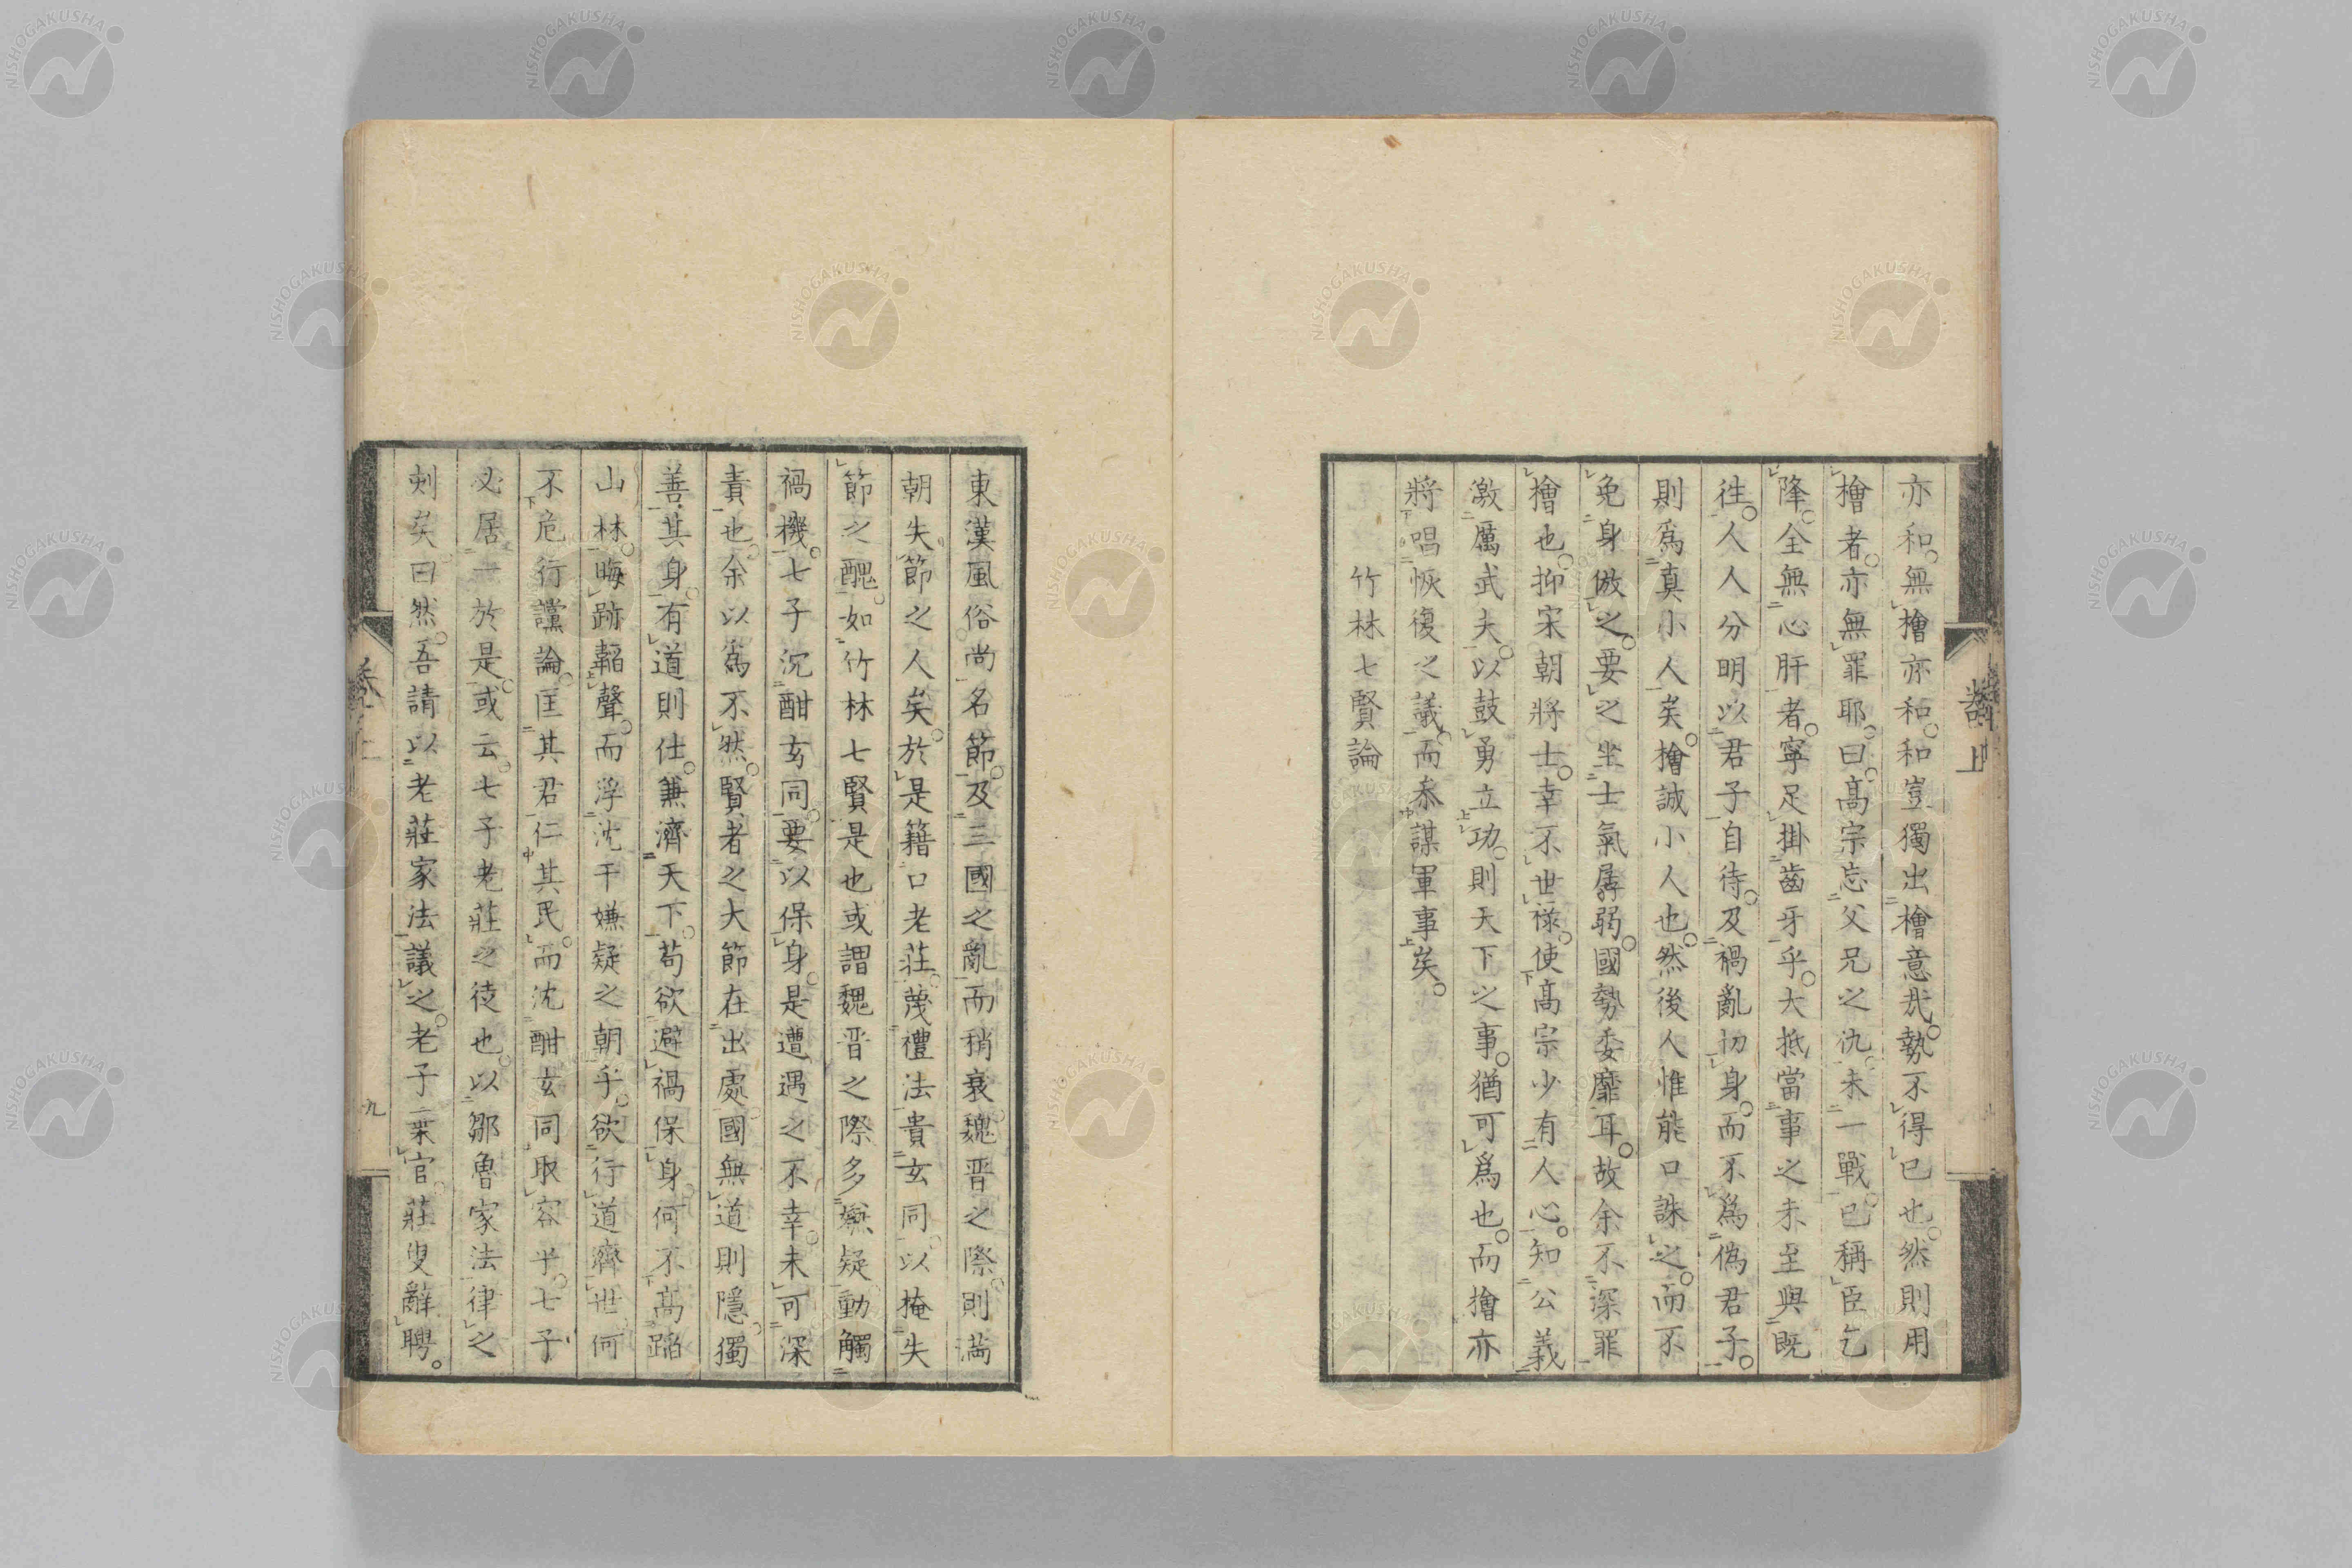 亦和。無檜亦和。和豈獨出檜意哉。勢不得已也。然則用
檜者。亦無罪耶。曰。高宗忘父兄之仇。未一戰。已稱臣乞
降。全無心肝者。寧足掛齒牙乎。大抵當事之未至與既
往。人人分明以君子自待。及禍亂切身。而不爲僞君子。
則爲真小人矣。檜誠小人也。然後人惟能口誅之。而不
免身倣之。要之坐士氣孱弱。國勢委靡耳。故余不深罪
檜也。抑宋朝將士。幸不世祿。使高宗少有人心。知公義
激厲武夫。以鼓勇立功。則天下之事。猶可爲也。而檜亦
將唱恢復之議。而叅謀軍事矣。
竹林七賢論
東漢風俗尚名節。及三國之亂而稍衰。魏晋之際。則滿
朝失節之人矣。於是籍口老莊。蔑禮法貴玄同。以掩失
節之醜。如竹林七賢是也。或謂魏晋之際多嫌疑。動觸
禍機。七子沉酣玄同。要以保身。是遭遇之不幸。未可深
責也。余以爲不然。賢者之大節在出處。國無道則隱。獨
善其身。有道則仕。兼濟天下。苟欲避禍保身。何不高蹈
山林。晦跡韜聲。而浮沈于嫌疑之朝乎。欲行道濟世。何
不危行讜論。匡其君仁其民。而沈酣玄同取容乎。七子
必居一於是。或云。七子老莊之徒也。以鄒魯家法律之
刻矣。曰然。吾請以老莊家法議之。老子棄官。莊叟辭聘。
卷上
九